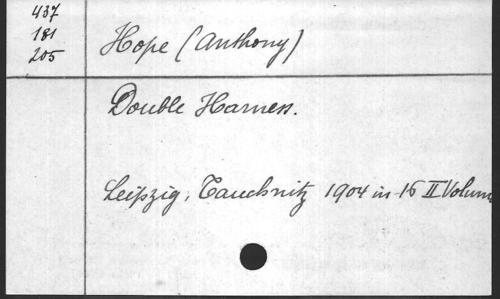 437
181
205
Hope (Anthony)
Double Harness.
Leipzig, Tauchnitz 1904 in-16 II Volum